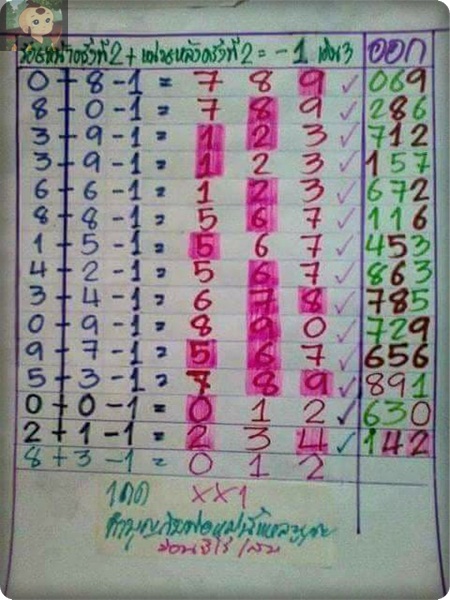 ร้อยหน้าครั้งที่2 + แม่นหลังครั้งที่2 = -1 เป็น 3 ออก
0 + 8 - 1 = 7 8 9 ✓ 069
8 + 0 - 1 = 7 8 9 ✓ 286
3 + 9 - 1 = 1 2 3 ✓ 712
3 + 9 - 1 = 1 2 3 ✓ 157
6 + 6 - 1 = 1 2 3 ✓ 672
8 + 8 - 1 = 5 6 7 ✓ 116
1 + 5 - 1 = 5 6 7 ✓ 453
4 + 2 - 1 = 5 6 7 ✓ 863
3 + 4 - 1 = 6 7 8 ✓ 785
0 + 9 - 1 = 8 9 0 ✓ 729
9 + 7 - 1 = 5 6 7 ✓ 656
5 + 3 - 1 = 7 8 9 ✓ 891
0 + 0 - 1 = 0 1 2 ✓ 630
2 + 1 - 1 = 2 3 4 ✓ 142
8 + 3 - 1 = 0 1 2
xx1